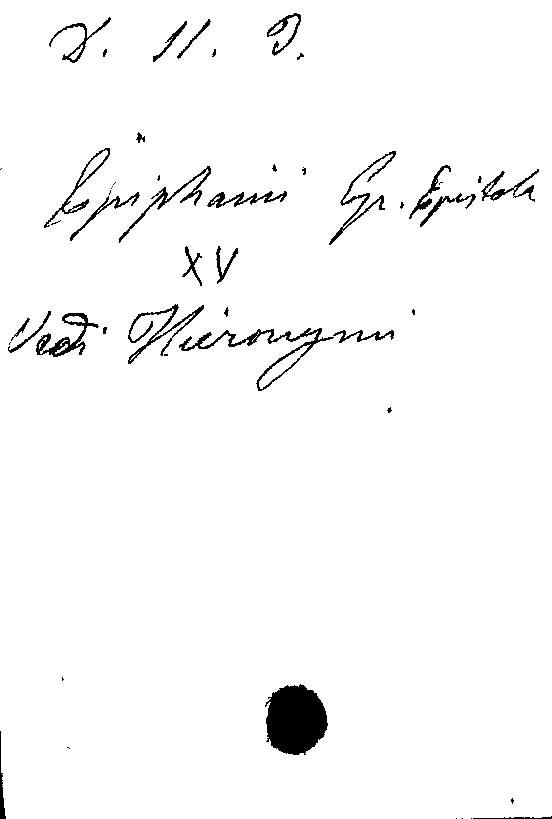 X. 11. D.
Epiphanii Gr. Epistola
XV
Vedi Hieronymi